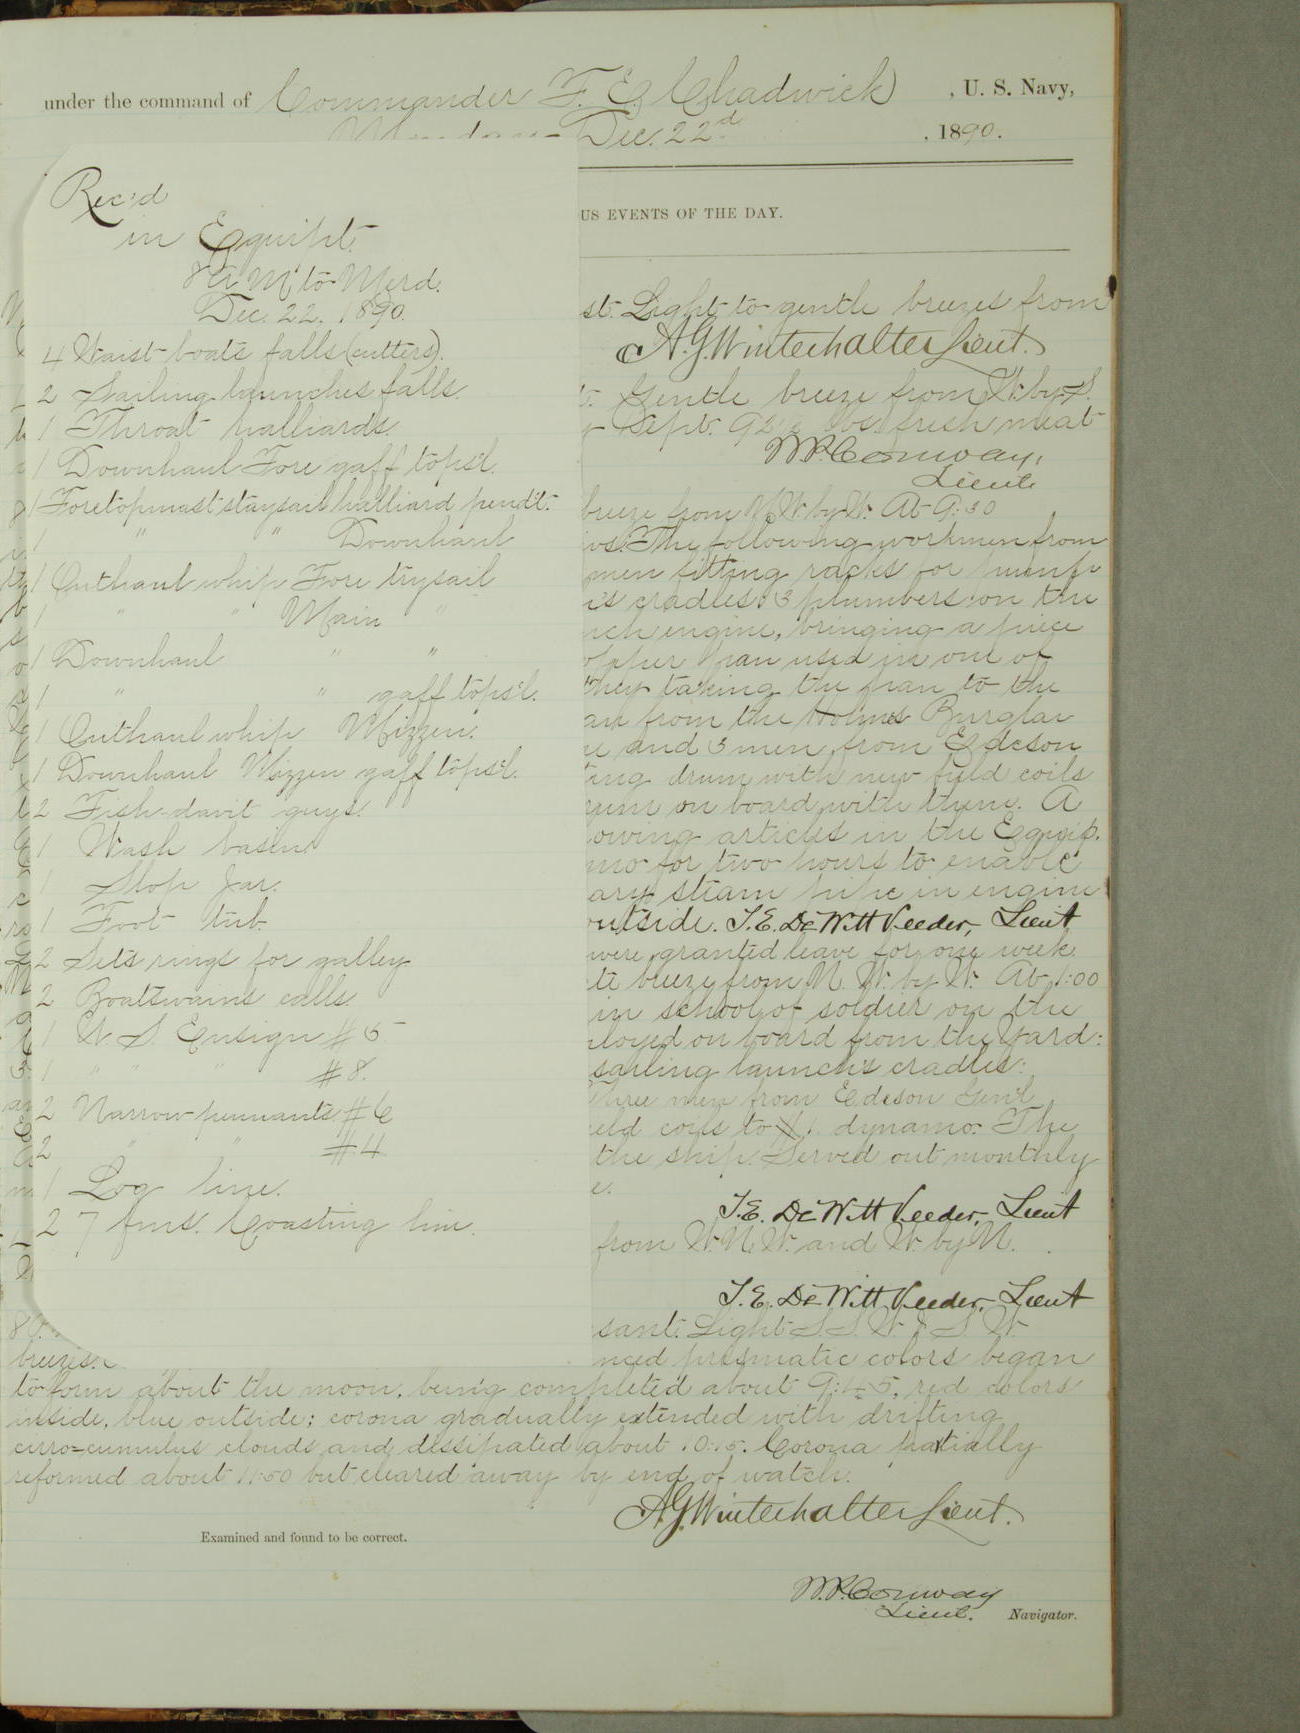 under the command of Commander F. E. Chadwick, U. S. Navy,
Dec. 22d, 1890.
US EVENTS OF THE DAY.
Rec'd
in Equipt.
8 A M to Merd.
Dec. 22. 1890.
4 Waist boats falls (cutters).
2 Sailing launches falls.
1 Throat halliards.
1 Downhaul Fore gaff tops'l.
1 Foretopmast staysail halliard pend't.
1 " " Downhaul
1 Outhaul whip Fore trysail
1 " " Main "
1 Downhaul " "
1 " " gaff tops'l.
1 Outhaul whip Mizzen.
1 Downhaul Mizzen gaff tops'l.
2 Fish davit guys.
1 Wash basin
1 Slop Jar.
1 Foot tub.
2 Sets rings for galley
2 Boatswains calls
1 U. S. Ensign # 5
1 " " " # 8.
2 Narrow pennants # 6
2 " " # 4
1 Log line.
27 fms. Coasting line.
st. Light to gentle breezes from
A. G. Winterhalter Lieut.
Gentle breeze from W. by S.
Sept. 92 lbs fresh meat
W. P. Conway,
Lieut.
breeze from N. W. by W. At 9:30
The following workmen from
men fitting racks for
cradles: 3 plumbers on the
engine, bringing a piece
pan used in one of
they taking the pan to the
from the Holmes Burglar
and 3 men from Edeson
drum with new field coils
on board with them. A
owing articles in the Equip.
for two hours to enable
steam pipe in engine
outside. T. E. DeWitt Veeder, Lieut
were granted leave for one week
breeze from N. W. by W. At 1:00
in school of soldier on the
ployed on board from the Yard:
sailing launch's cradles:
Three men from Edeson Gen'l
coils to # 1. dynamo. The
the ship. Served out monthly
e.
T. E. DeWitt Veeder, Lieut
from W. N. W. and W. by N.
T. E. DeWitt Veeder, Lieut
sant. Light S. S. W. & S. W.
breezes. nced prismatic colors began
to form about the moon, being completed about 9:45, red colors
inside, blue outside; corona gradually extended with drifting
cirro-cumulus clouds and dissipated about 10:15. Corona partially
reformed about 11:50 but cleared away by end of watch.
A. G. Winterhalter Lieut.
Examined and found to be correct.
W. P. Conway
Lieut. Navigator.